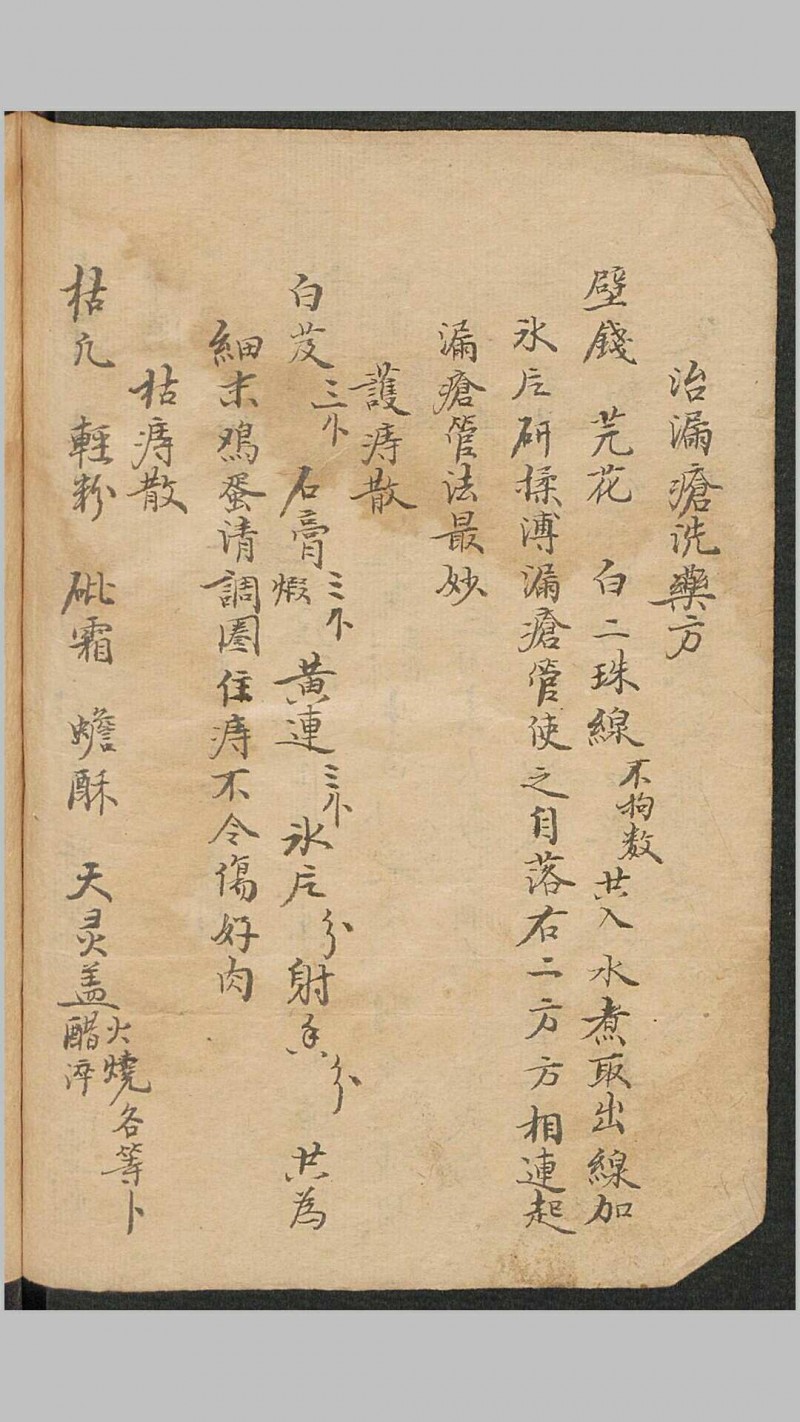 治漏瘡洗藥方
壁錢 芫花 白二珠線不拘數共入水煮取出線加
氷片研揉溥漏瘡管使之自落右二方方相連起
漏瘡管法最妙
護痔散
白芨三卜 石膏煆三卜 黃連三卜 氷片分 射香分 共為
細末鳮蛋清調圈住痔不令傷好肉
枯痔散
枯凢 輕粉 砒霜 蟾酥 天灵盖火燒醋淬各等卜